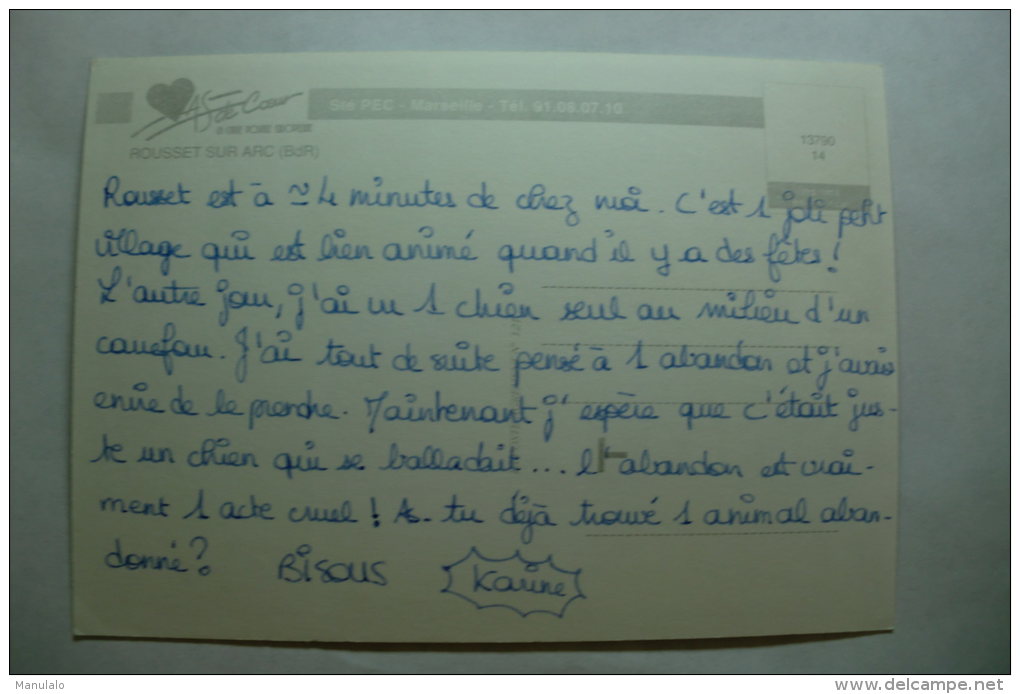 AS de Cœur
Sté PEC - Marseille - Tél. 91.08.07.10
ROUSSET SUR ARC (BdR)
13790
14
Rousset est à ≃ 4 minutes de chez moi. C'est 1 joli petit
village qui est bien animé quand il y a des fêtes!
L'autre jour, j'ai vu 1 chien seul au milieu d'un
carrefour. J'ai tout de suite pensé à 1 abandon et j'avais
envie de le prendre. Maintenant j'espère que c'était jus-
te un chien qui se balladait... l'abandon est vrai-
ment 1 acte cruel! As-tu déjà trouvé 1 animal aban-
donné? Bisous Karine
Manulalo
www.delcampe.net